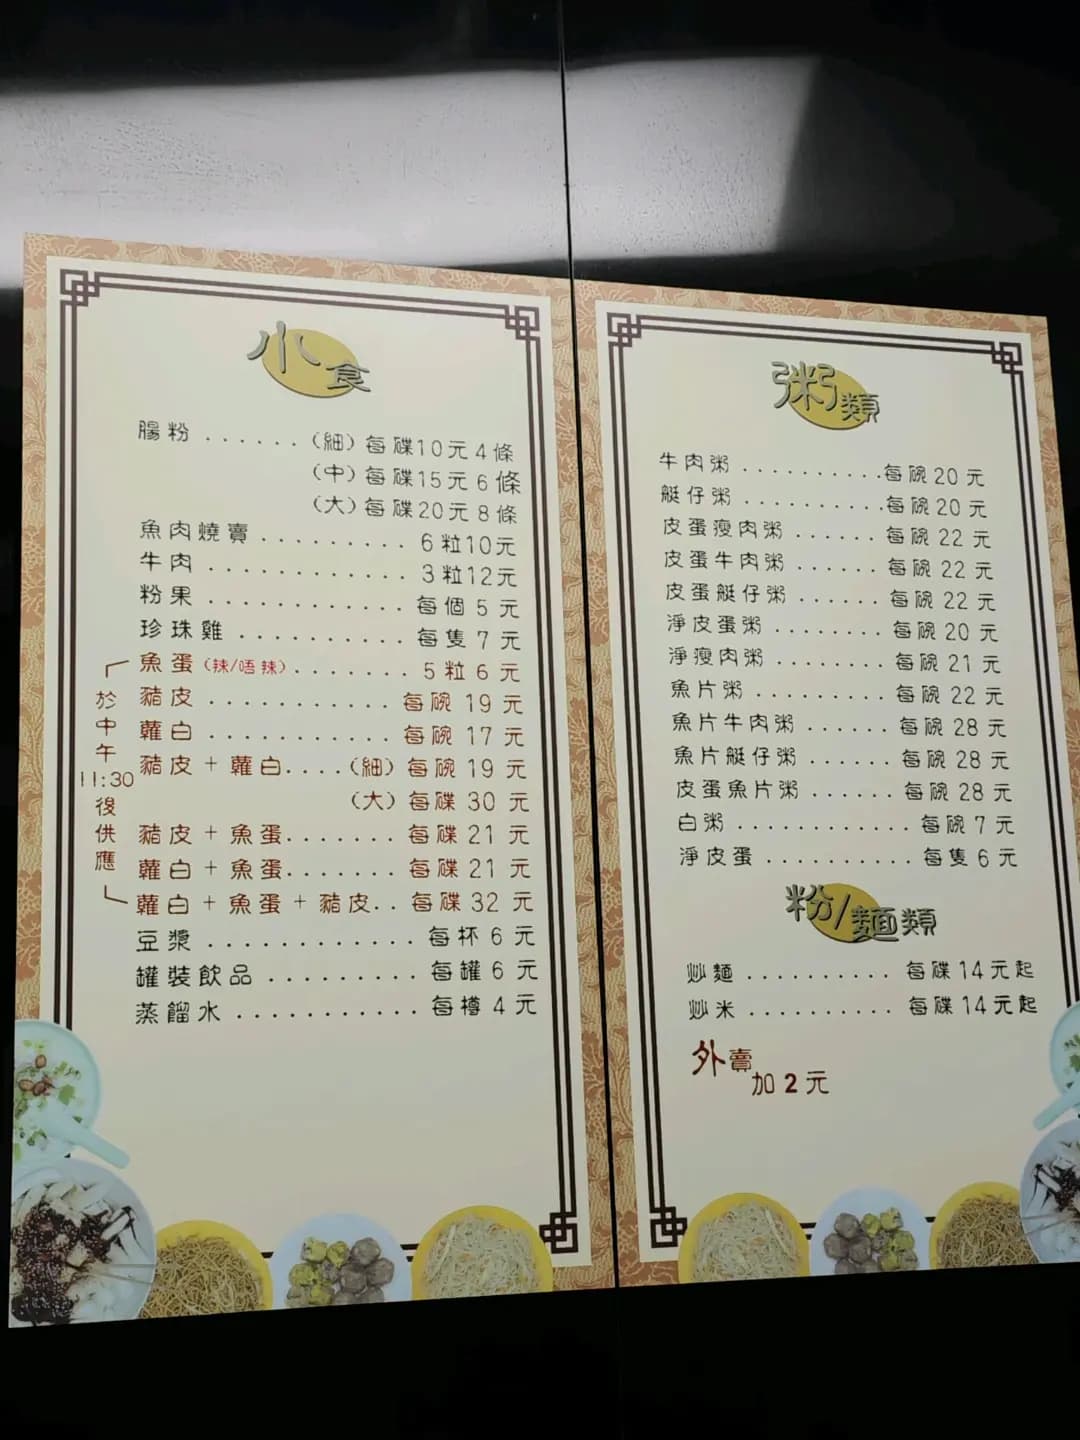 小食
腸粉 ...... （細）每碟10元4條
（中）每碟15元6條
（大）每碟20元8條
魚肉燒賣 ......... 6粒10元
牛肉 ............ 3粒12元
粉果 ............ 每個5元
珍珠雞 .......... 每隻7元
魚蛋（辣/唔辣）....... 5粒6元
豬皮 ........... 每碗19元
蘿白 ........... 每碗17元
豬皮+蘿白....（細）每碗19元
（大）每碟30元
豬皮+魚蛋....... 每碟21元
蘿白+魚蛋....... 每碟21元
蘿白+魚蛋+豬皮.. 每碟32元
「於中午11:30後供應」
豆漿 ............ 每杯6元
罐裝飲品 ......... 每罐6元
蒸餾水 ........... 每樽4元
粥類
牛肉粥 .......... 每碗20元
艇仔粥 .......... 每碗20元
皮蛋瘦肉粥 ...... 每碗22元
皮蛋牛肉粥 ...... 每碗22元
皮蛋艇仔粥 ...... 每碗22元
淨皮蛋粥 ........ 每碗20元
淨瘦肉粥 ........ 每碗21元
魚片粥 ......... 每碗22元
魚片牛肉粥 ...... 每碗28元
魚片艇仔粥 ...... 每碗28元
皮蛋魚片粥 ...... 每碗28元
白粥 ............ 每碗7元
淨皮蛋 .......... 每隻6元
粉/麵類
炒麵 .......... 每碟14元起
炒米 .......... 每碟14元起
外賣
加2元